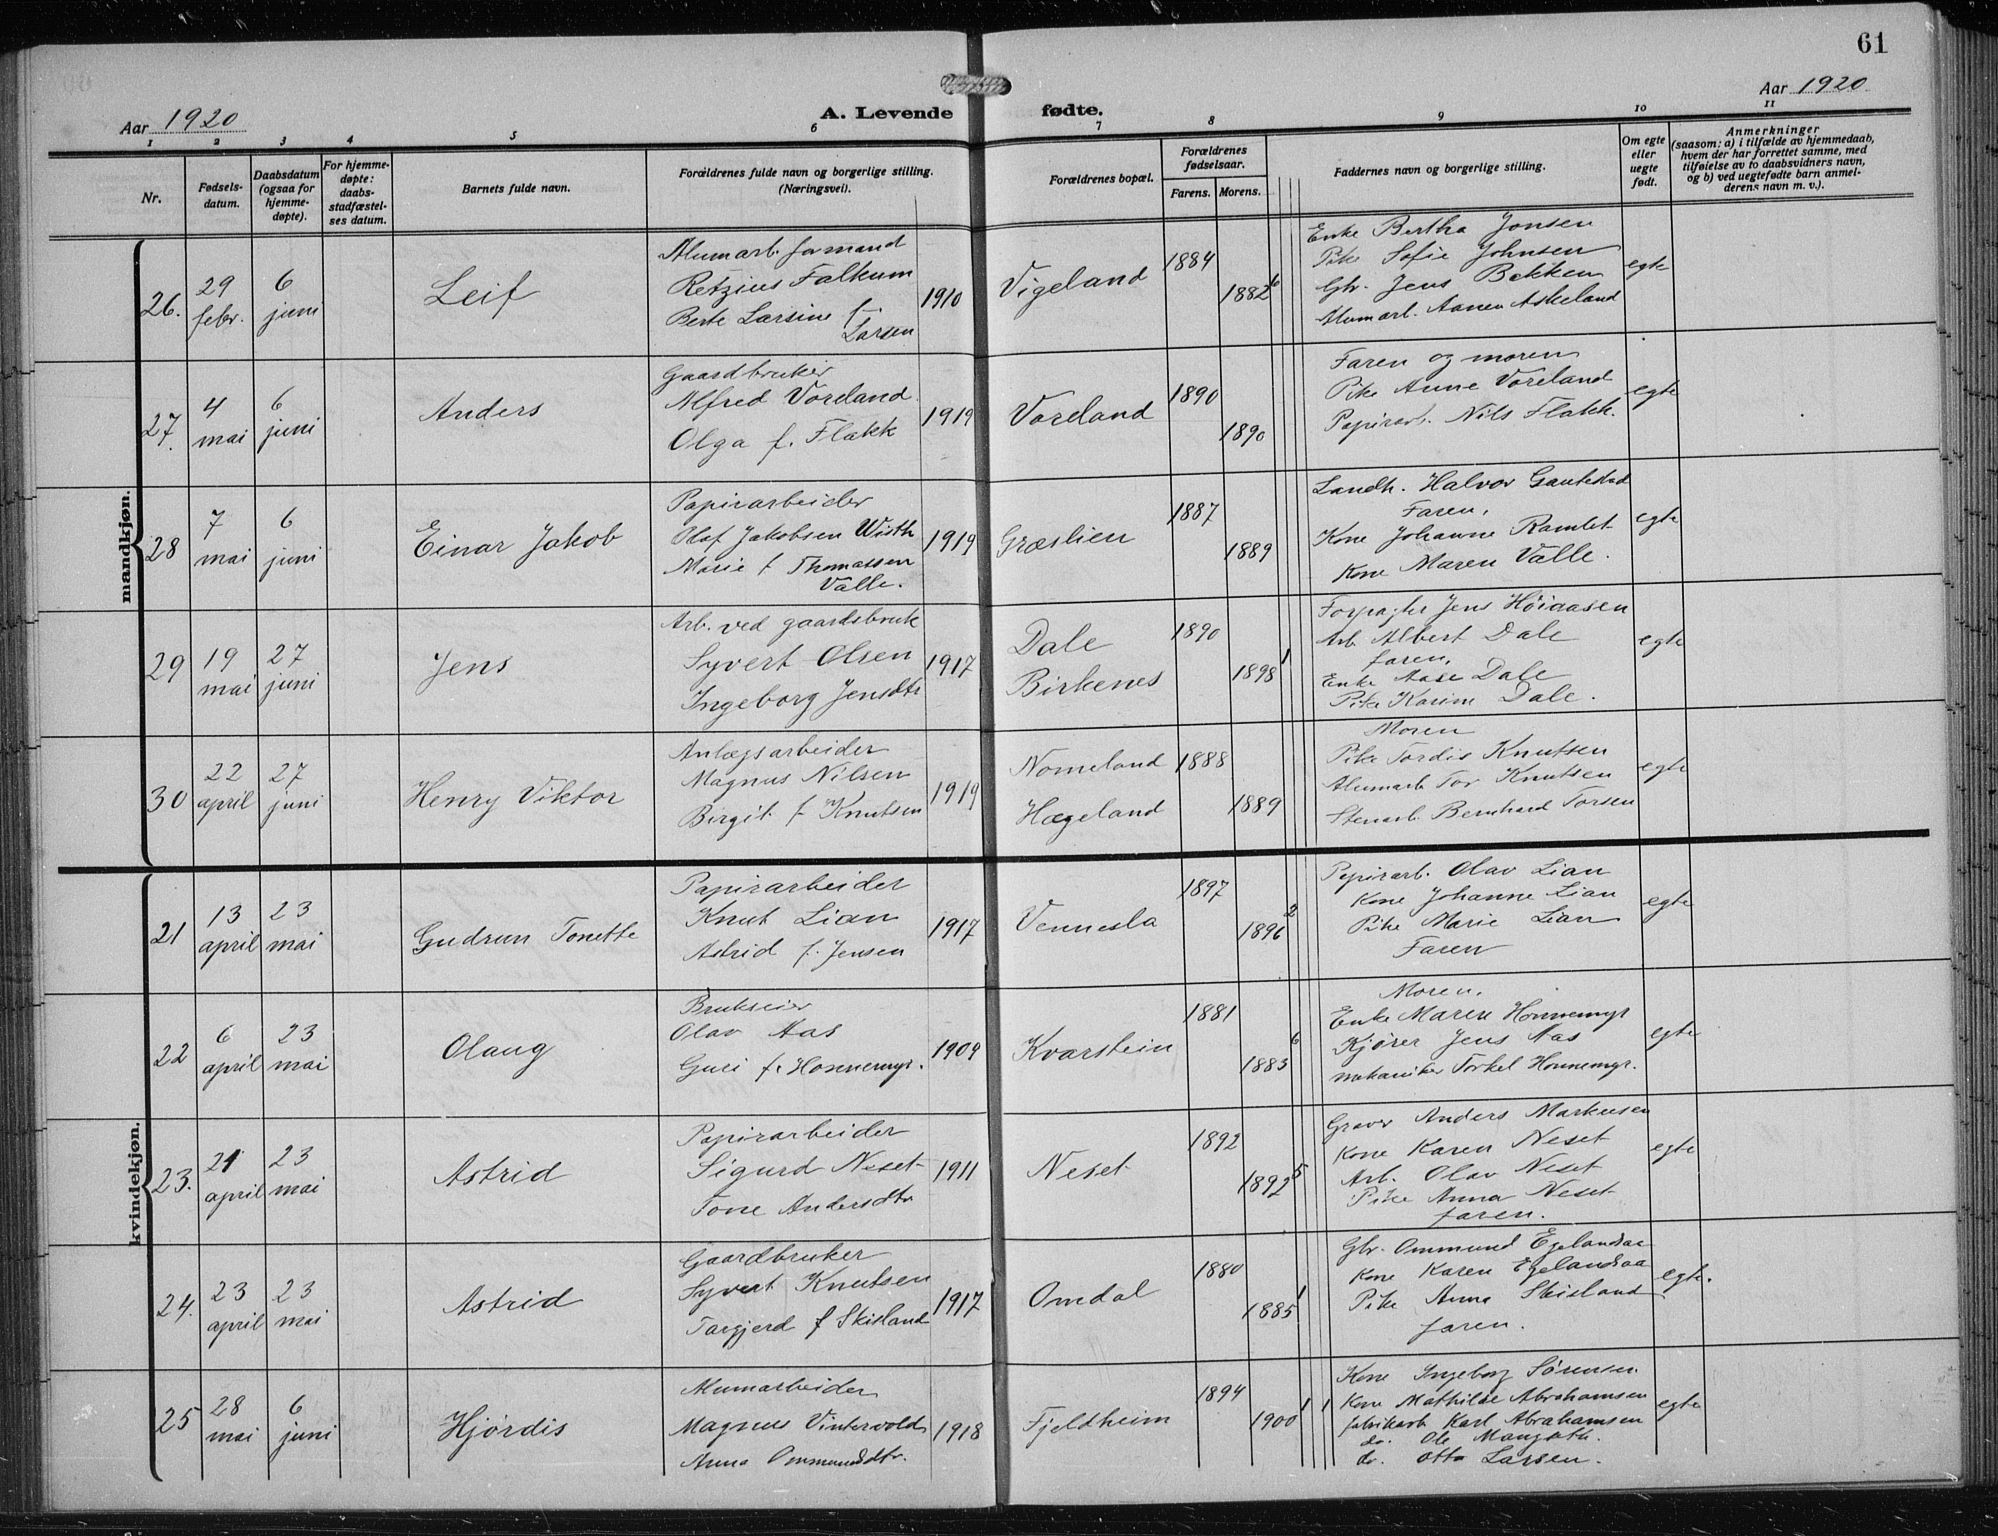 61
Aar 1920
A. Levende fødte.
Aar 1920
1 2 3 4 5 6 7 8 9 10 11
Nr.
Fødsels-
datum.
Daabsdatum
(ogsaa for
hjemme-
døpte).
For hjemme-
døpte:
daabs-
stadfæstel-
ses datum.
Barnets fulde navn.
Forældrenes fulde navn og borgerlige stilling.
(Næringsvei).
Forældrenes bopæl.
Forældrenes
fødselsaar.
Farens. Morens.
Faddernes navn og borgerlige stilling.
Om egte
eller
uegte
født.
Anmerkninger
(saasom: a) i tilfælde av hjemmedaab,
hvem der har forrettet samme, med
tilføielse av to daabsvidners navn,
og b) ved uegtefødte barn anmel-
derens navn m. v.).
mandkjøn.
26.
29
febr.
6
juni
Leif
Alumarb. formand
Retzius Falkum
Berte Larsine f.
Larsen
1910
Vigeland
1884
1882
6
Enke Bertha Jonsen
Pike Sofie Johnsen
Gbr. Jens Bakken
Alumarb. Aanen Askeland
egte
27.
4
mai
6
juni
Anders
Gaardbruker
Alfred Voreland
Olga f. Flakk
1919
Voreland
1890
1890
Faren og moren
Pike Anne Voreland
Papirarb. Nils Flakk.
egte
28
7
mai
6
juni
Einar Jakob
Papirarbeider
Olaf Jakobsen Wisth
Marie f Thomassen
Valle.
1919
Græslien
1887
1889
Landh. Halvor Gautestad
Faren,
Kone Johanne Ramlet
Kone Maren Valle.
egte
29
19
mai
27
juni
Jens
Arb. ved gaardsbruk
Syvert Olsen
Ingeborg Jensdtr
1917
Dale
Birkenes
1890
1898
1
Forpagter Jens Høiaasen
Arb. Albert Dale
faren,
Enke Aase Dale
Pike Karine Dale.
egte
30
22
april
27
juni
Henry Viktor
Anlægsarbeider
Magnus Nilsen
Birgit f Knutsen
1919
Nomeland
Hægeland
1888
1889
Moren
Pike Tordis Knutsen
Alumarb Tor Knutsen
Stenarb. Bernhard Torsen
egte
kvindekjøn.
21
13
april
23
mai
Gudrun Tonette
Papirarbeider
Knut Lian
Astrid f. Jensen
1917
Vennesla
1897
1896
2
Papirarb. Olav Lian
Kone Johanne Lian
Pike Marie Lian
Faren
egte
22
6
april
23
mai
Olaug
Brukseier
Olav Aas
Guri f. Honnemyr.
1909
Kvarstein
1881
1883
6
Moren,
Enke Maren Honnemyr
Kjører Jens Aas
mekaniker Torkel Honnemyr.
egte
23.
21
april
23
mai
Astrid
Papirarbeider
Sigurd Neset
Tone Andersdtr
1911
Neset
1892
1892
5
Graver Anders Markusen
Kone Karen Neset
Arb. Olav Neset
Pike Anna Neset
faren.
egte
24.
23
april
23
mai
Astrid
Gaardbruker
Syvert Knutsen
Targjerd f Skisland
1917
Omdal
1880
1885
1
Gbr. Ommund Egelandsaa
Kone Karen Egelandsaa
Pike Anna Skisland
faren.
egte.
25
28
mai
6
juni
Hjørdis
Alumarbeider
Magnus Vintervold
Anna Ommundsdtr.
1918
Fjeldheim
1894
1900
1 1
Kone Ingeborg Sørensen
Kone Mathilde Abrahamsen
fabrikarb Karl Abrahamsen
do. Ole
do. Otto Larsen.
egte